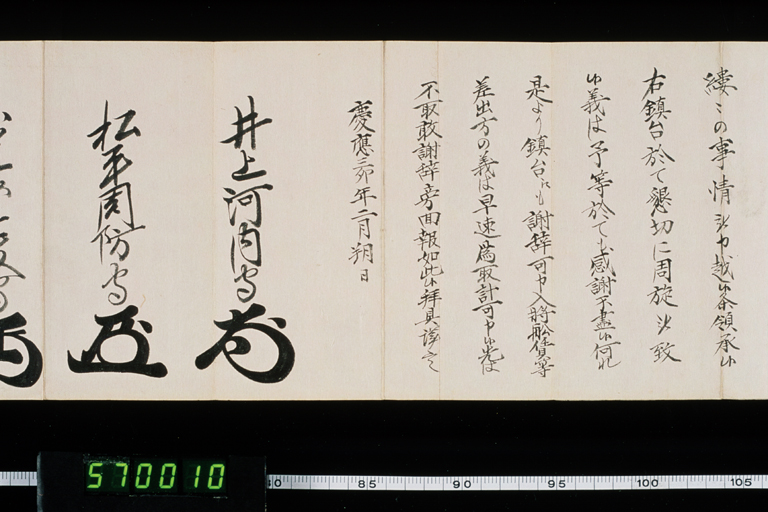 縷々の事情被申越候条領承候
右鎮台於て懇切に周旋被致
候義は予等於ても感謝不盡候何れ
是より鎮台にも謝辞可申入将船賃等
差出方の義は早速為取計可申候先は
不取敢謝辞旁回報如此候拝具謹言
慶應三卯年二月朔日
井上河内守
松平周防守
570010
80 85 90 95 100 105